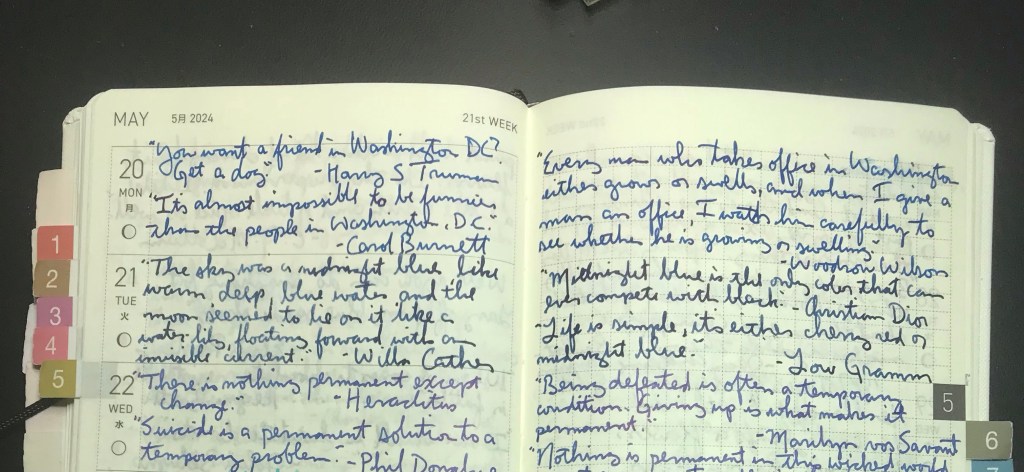 MAY 5月 2024
21st WEEK
20
MON
月
"You want a friend in Washington DC?
Get a dog" - Harry S Truman
"It's almost impossible to be funnier
than the people in Washington, DC."
- Carol Burnett
21
TUE
火
"The sky was a midnight blue, like
warm, deep, blue water, and the
moon seemed to lie on it like a
water-lily, floating forward with an
invisible current." - Willa Cather
22
WED
水
"There is nothing permanent except
change." - Heraclitus
"Suicide is a permanent solution to a
temporary problem. - Phil Donahue
1
2
3
4
5
"Every man who takes office in Washington
either grows or swells, and when I give a
man an office, I watch him carefully to
see whether he is growing or swelling"
- Woodrow Wilson
"Midnight blue is the only color that can
ever compete with black. - Christian Dior
-Life is simple, it's either cherry red or
midnight blue."
- Lou Gramm
"Being defeated is often a temporary
condition. Giving up is what makes it
permanent."
- Marilyn vos Savant
"Nothing is permanent in this wicked
5
6
7